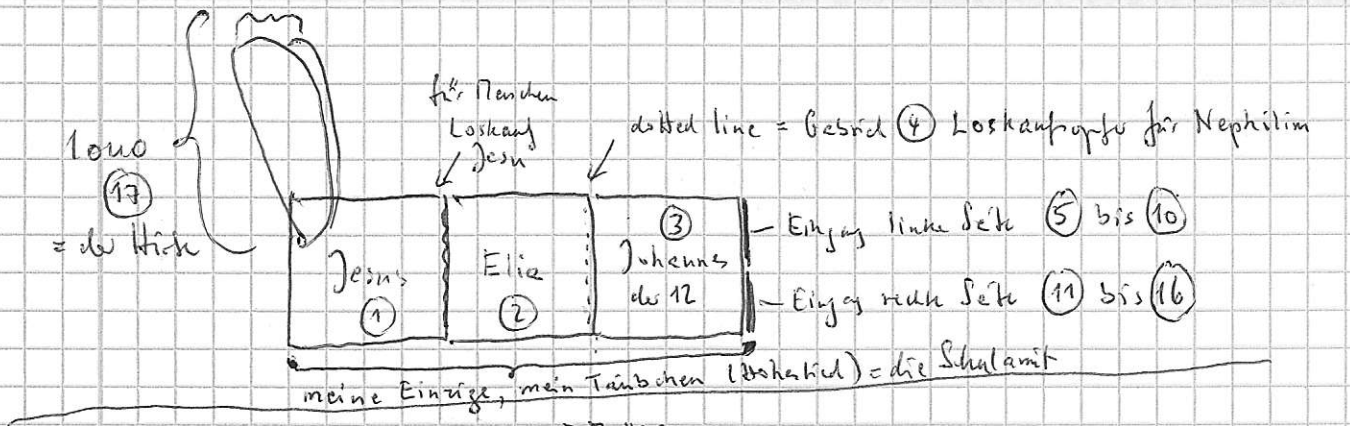 für Menschen
Loskauf
Jesu
dotted line = Gabriel ④ Loskaufopfer für Nephilim
⑰
= der Hirte
Jesus
①
Elia
②
③
Johannes
der 12
– Eingang linke Seite ⑤ bis ⑩
– Eingang rechte Seite ⑪ bis ⑯
meine Einzige, mein Täubchen (Hohelied) = die Schulamit